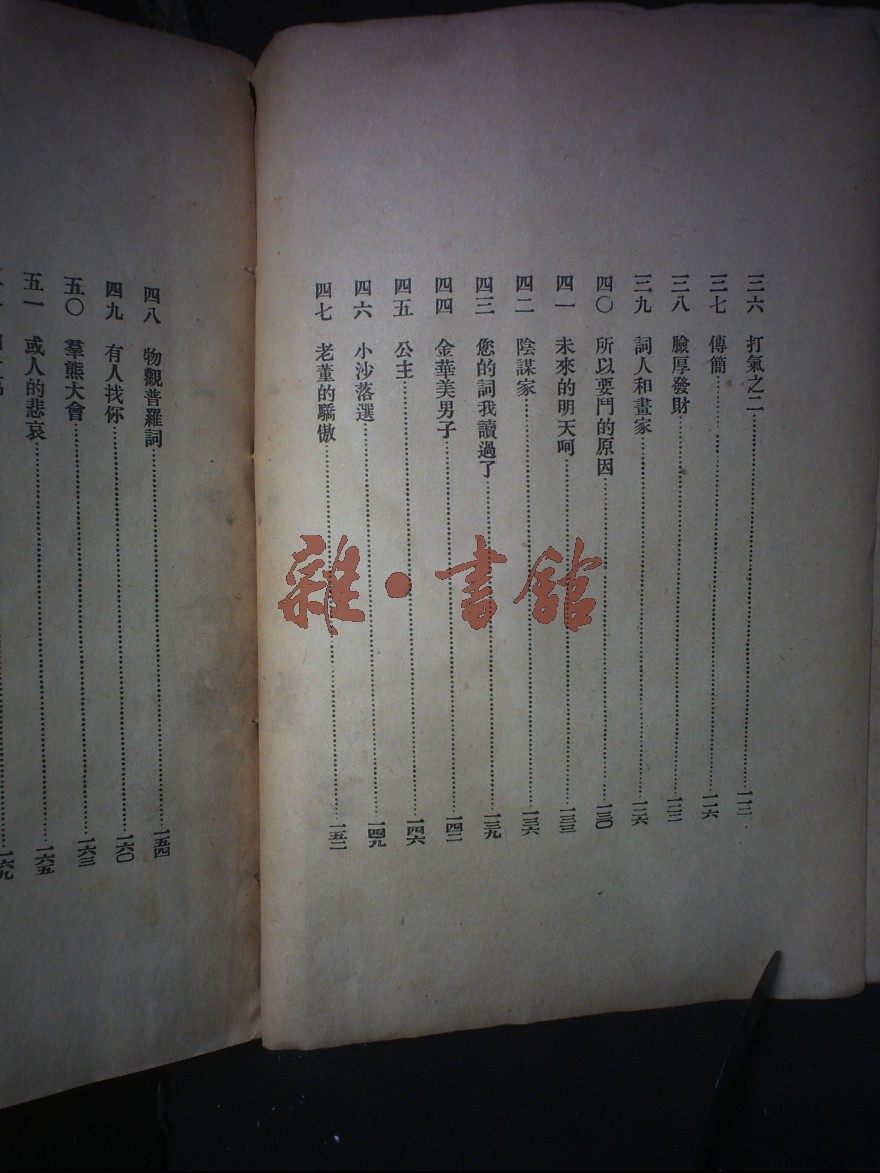 三六　打氣之二………一一二
三七　傳簡………一一六
三八　臉厚發財………一二二
三九　詞人和畫家………一二六
四〇　所以要鬥的原因………一三〇
四一　未來的明天呵………一三三
四二　陰謀家………一三六
四三　您的詞我讀過了………一三九
四四　金華美男子………一四二
四五　公主………一四六
四六　小沙落選………一四九
四七　老董的驕傲………一五二
四八　物觀普羅詞………一五四
四九　有人找你………一六〇
五〇　羣熊大會………一六三
五一　或人的悲哀………一六五
一六九
雜·書館